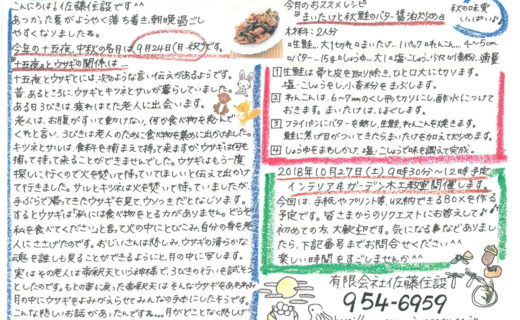 こんにちは！佐藤住設です^^
あつかった夏がようやく落ち着き、朝晩過ごし
やすくなりましたね。
今年の十五夜、中秋の名月は、9月24日(月・祝)です。
『十五夜』と『ウサギの関係は…
十五夜とウサギには、次のような言い伝えがあるようです。
昔、あるところにウサギとキツネとサルが暮らしていました。
ある日3びきは疲れはてた老人に出会います。
老人は、お腹がすいて動けない、何か食べ物を恵んで
くれと言い、3びきは老人のために食べ物を集めに出かけました。
キツネとサルは、食料を捕まえて持って来ますが、ウサギは何も
捕って、持って来ることができませんでした。ウサギはもう一度
探しに行くので火を焚いて待っていてほしいと伝えて出かけ
て行きました。サルとキツネは火を焚いて待っていましたが、
手ぶらで帰ってきたウサギを見て、ウソつきだとなじります。
するとウサギは「私には食べ物をとる力がありません。どうぞ
私を食べてください」と言って火の中にとびこみ、自分の身を老
人にささげたのです。おじいさんは悲しみ、ウサギの清らかな
魂を誰しも見ることができるようにと、月の中に写します。
実はその老人は帝釈天という神様で、3びきの行いを試そう
としたのです。もとの姿に戻った帝釈天はそんなウサギをあわれみ
月の中にウサギをよみがえらせてみんなの手本にしたそうです。
こんな悲しいお話があったんですね…。月がどことなく悲しげ
今月のおススメレシピ
『まいたけと秋鮭のバター醤油炒め』
秋の味覚
材料：2人分
○生鮭…大1切れ ○まいたけ…1パック ○れんこん…4~5cm
○バター…15g ○しょうゆ…大1 ○塩・こしょう(又は)小麦粉…適量
1 生鮭は骨と皮を取り除き、ひと口大に切ります。
塩・こしょうをし、小麦粉をまぶします。
2 れんこんは、6~7mmのくし形切りにし、酢水につけて
おきます。まいたけは、ほぐします。
3 フライパンにバターを熱し、生鮭、れんこんを焼きます。
鮭に焦げ目がついてきたらまいたけを加えて炒めます。
4 しょうゆをまわしかけ、塩・こしょうで味を調えて完成。
2018年10月27日(土) 9時30分~12時予定
インテリア&ガーデン木工教室開催します。
今回は、手紙やプリント等、収納できるBOXを作る
予定です。皆さまからのリクエストにお答えして♪
初めての方、大歓迎です。気になる事などありまし
たら、下記番号までお問合せください^^
楽しい時間をすごしませんか^^
有限会社佐藤住設
954-6959